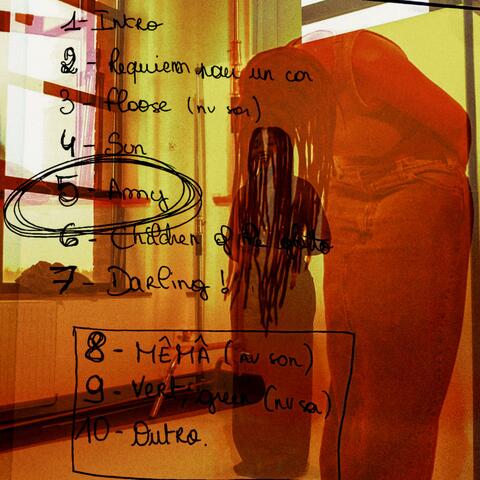 1- Intro
2- Requiem pour un con
3- Floose (nv son)
4- Sun
5- Amy
6- Children of the ghetto
7- Darling!
8- MÊMÂ (nv son)
9- Vert; green (nv son)
10- Outro.